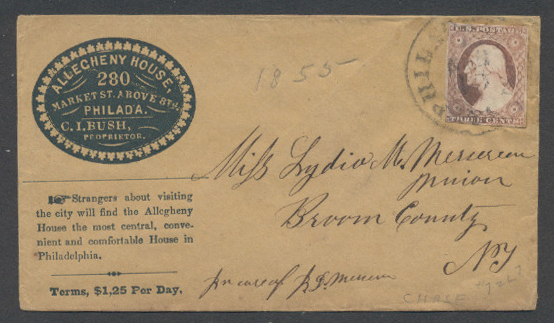 ALLEGHENY HOUSE,
280
MARKET ST. ABOVE 8TH.
PHILADA.
C. I. BUSH,
PROPRIETOR.
Strangers about visiting
the city will find the Allegheny
House the most central, conve-
nient and comfortable House in
Philadelphia.
Terms, $1,25 Per Day.
1855
PHILA
U.S. POSTAGE
THREE CENTS
Miss Lydia M. Mersereau
Union
Broom County
NY
in care of
CHASE